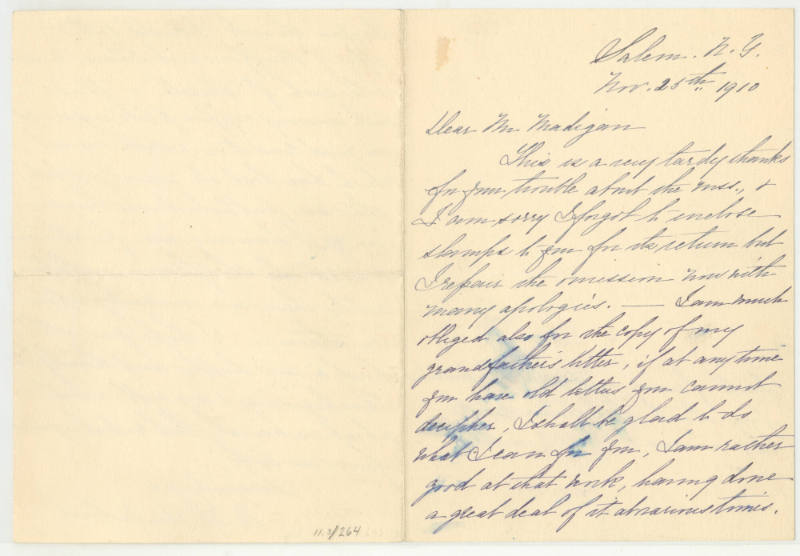 Salem. N. Y.
Nov. 25th. 1910
Dear Mr. Madigan
This is a very tardy thanks
for your trouble about the mss., &
I am sorry I forgot to inclose
stamps to you for its return but
I repair the omission now with
many apologies. — I am much
obliged also for the copy of my
grandfather's letter, if at any time
you have old letters you cannot
decipher, I shall be glad to do
what I can for you, I am rather
good at that work, having done
a great deal of it at various times.